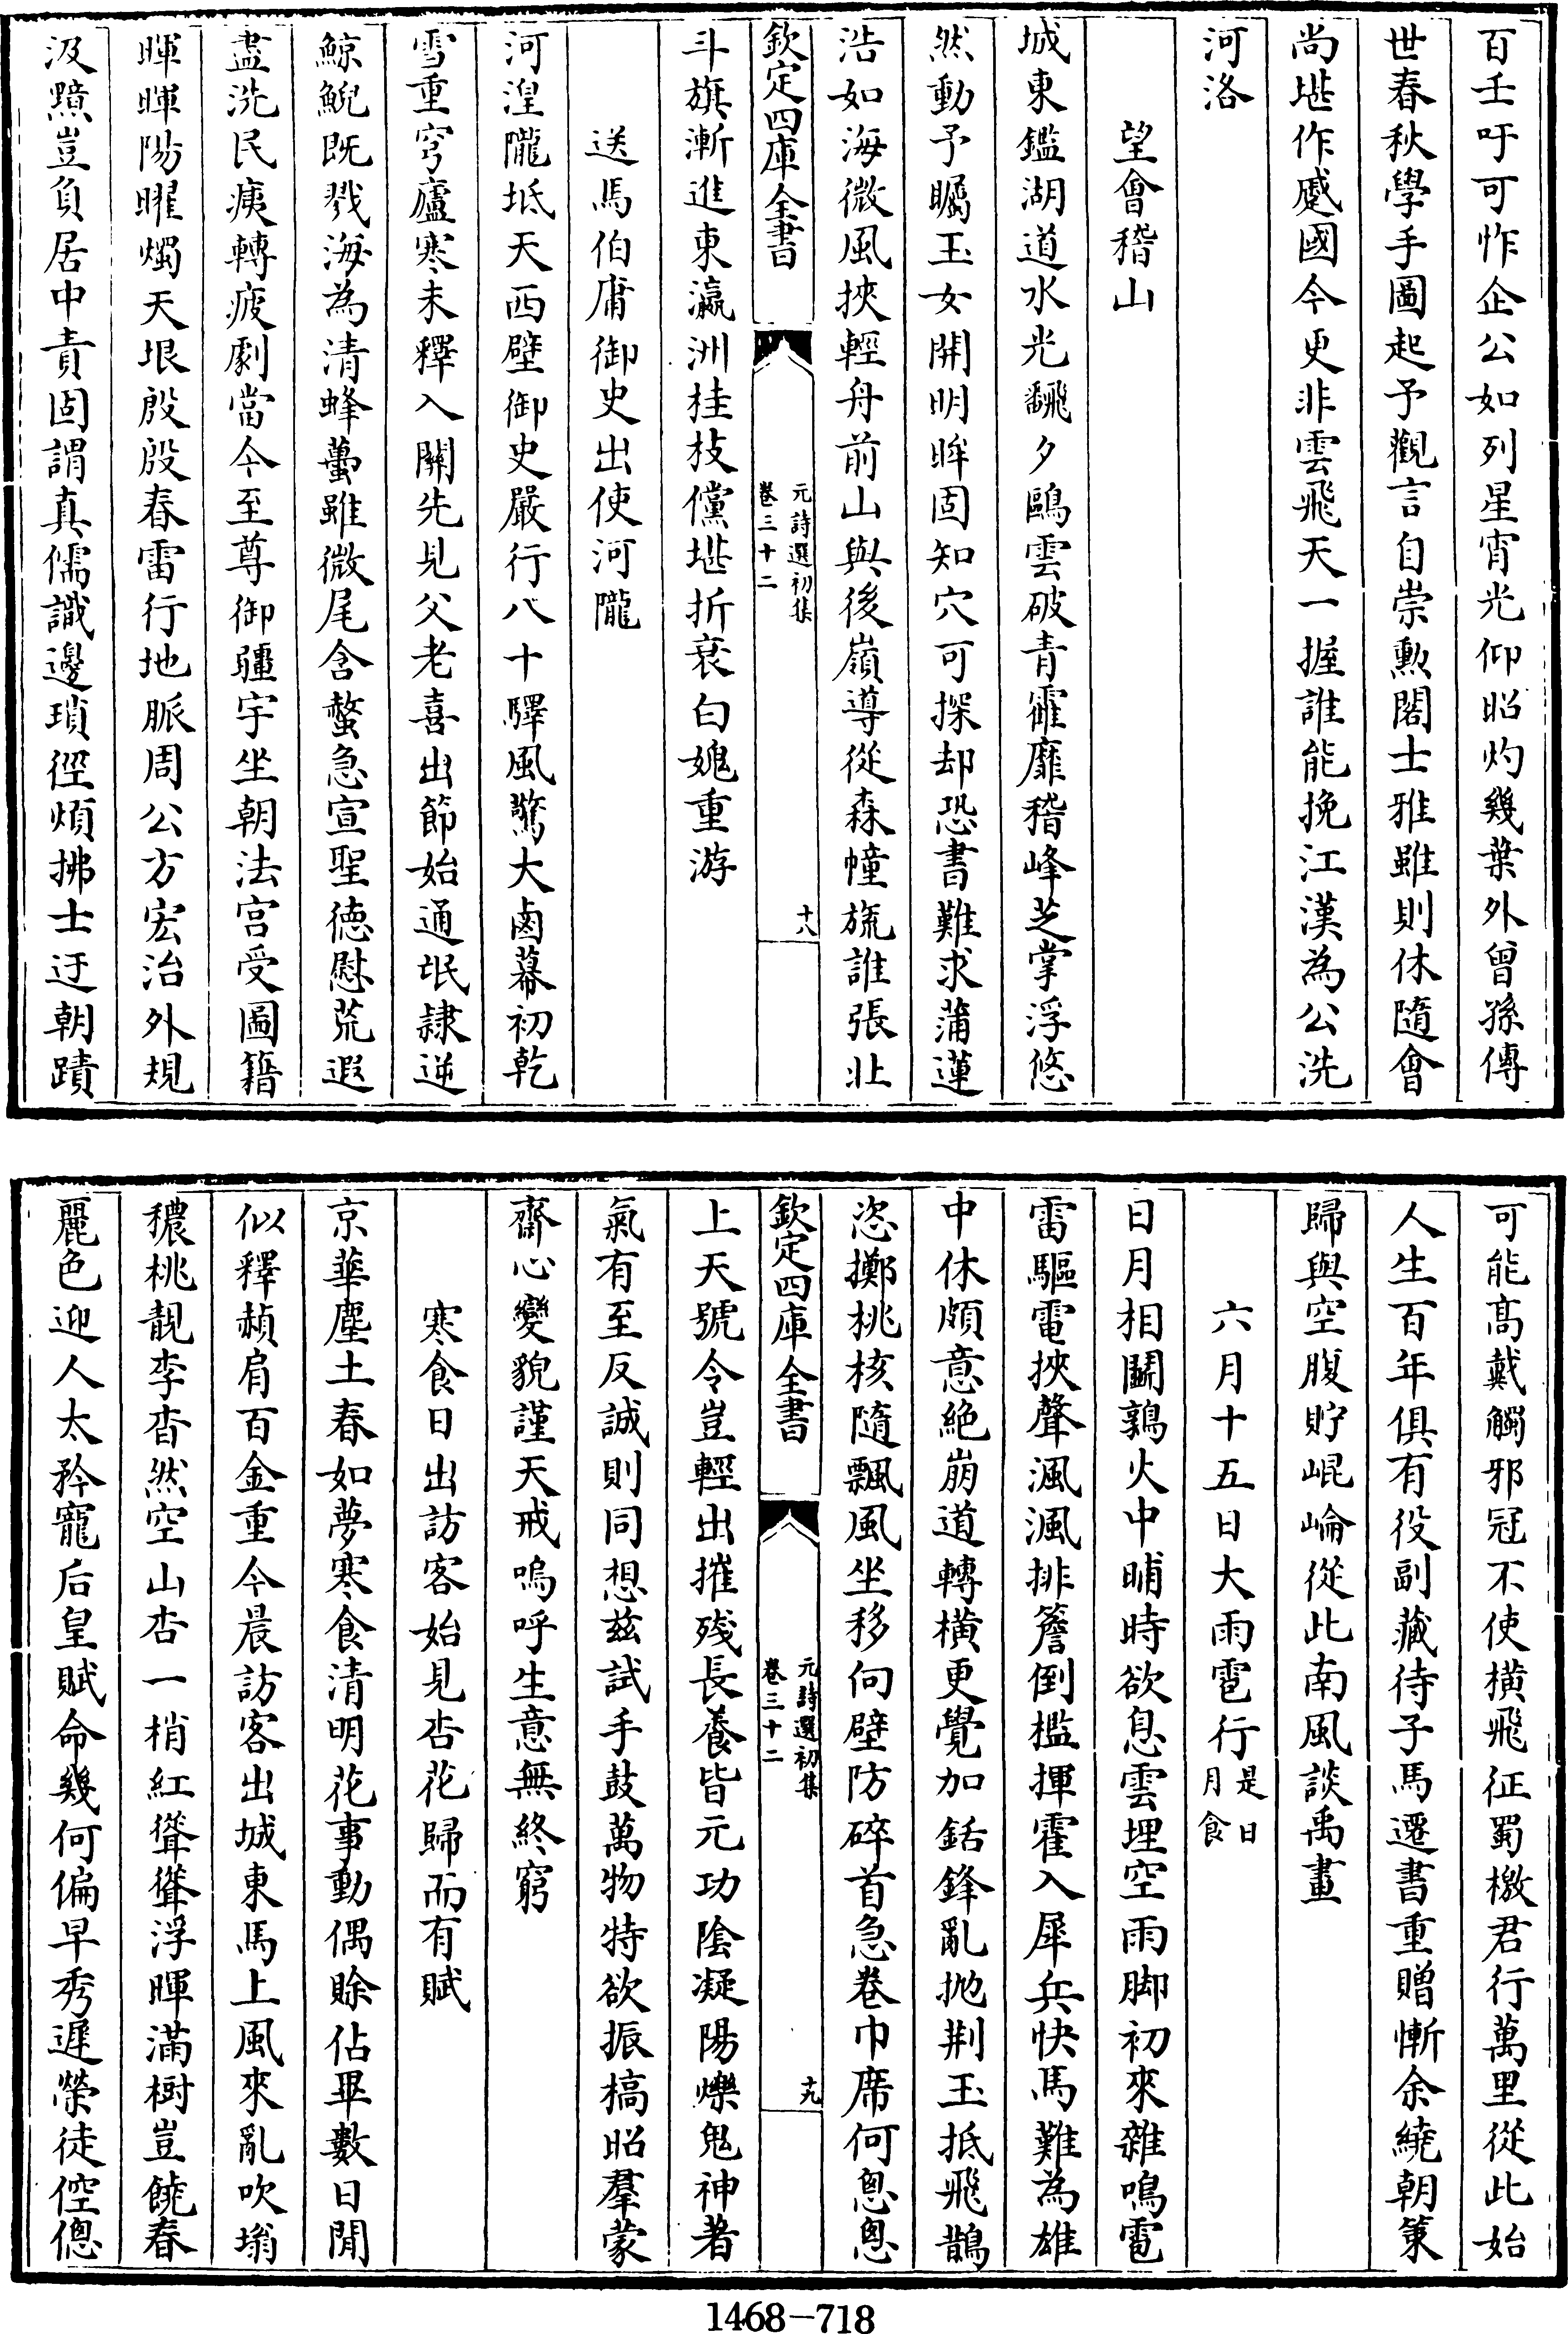 百壬吁可怍企公如列星宵光仰昭灼幾葉外曾孫傳
世春秋學手圖起予觀言自崇勲閣士雅雖則休隨會
尚堪作蹙國今更非雲飛天一握誰能挽江漢為公洗
河洛
望會稽山
城東鑑湖道水光翻夕鷗雲破青霍靡稽峰芝掌浮悠
然動予矚玉女開明眸固知穴可探却恐書難求蒲蓮
浩如海微風挾輕舟前山與後嶺導從森幢旒誰張北
欽定四庫全書
元詩選初集
卷三十二
十八
斗旗漸進東瀛洲桂枝儻堪折衰白媿重游
送馬伯庸御史出使河隴
河湟隴坻天西壁御史嚴行八十驛風驚大鹵幕初乾
雪重穹廬寒未釋入關先見父老喜出節始通氓隸逆
鯨鯢既戮海為清蜂蠆雖微尾含螫急宣聖德慰荒遐
盡洗民痍轉疲劇當今至尊御疆宇坐朝法宫受圖籍
暉暉陽曜燭天垠殷殷春雷行地脈周公方宏治外規
汲黯豈負居中責固謂真儒識邊瑣徑煩拂士迂朝蹟
可能髙戴觸邪冠不使横飛征蜀檄君行萬里從此始
人生百年俱有役副藏待子馬遷書重贈慚余繞朝策
歸與空腹貯崐崘從此南風談禹畫
六月十五日大雨雹行是日月食
日月相鬭鶉火中晡時欲息雲埋空雨脚初來雜鳴雹
雷驅電挾聲渢渢排簷倒檻揮霍入犀兵快馬難為雄
中休頗意絶崩道轉横更覺加銛鋒亂抛荆玉抵飛鵲
恣擲桃核隨飄風坐移向壁防碎首急卷巾席何悤悤
欽定四庫全書
元詩選初集
卷三十二
十九
上天號令豈輕出摧殘長養皆元功陰凝陽爍鬼神著
氣有至反誠則同想兹試手鼓萬物特欲振槁昭羣蒙
齋心變貌謹天戒嗚呼生意無終窮
寒食日出訪客始見杏花歸而有賦
京華塵土春如夢寒食清明花事動偶賒佔畢數日閒
似釋赬肩百金重今晨訪客出城東馬上風來亂吹塕
穠桃靚李杳然空山杏一梢紅聳聳浮暉滿樹豈饒春
麗色迎人太矜寵后皇賦命幾何偏早秀遲榮徒倥傯
1468-718